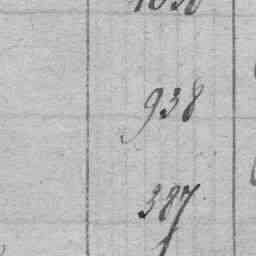 938
387